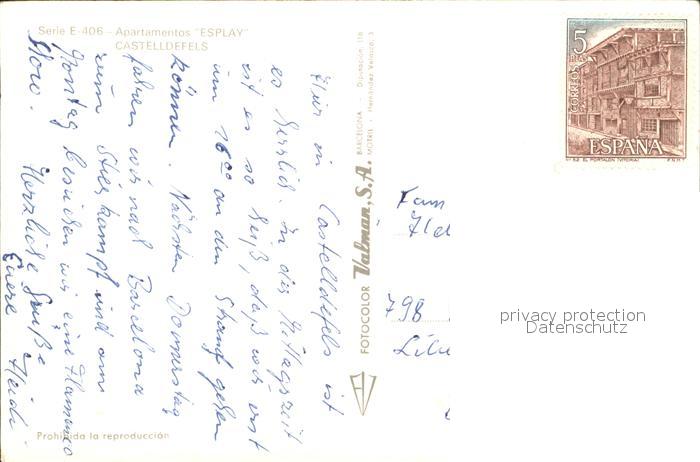 Serie E-406 - Apartamentos "ESPLAY"
CASTELLDEFELS
Hier in Castelldefels ist
es herrlich. In der Mittagszeit
ist es so heiß, daß wir erst
um 16.00 an den Strand gehen
können. Nächsten Donnerstag
fahren wir nach Barcelona
zum Stierkampf und am
Montag besuchen wir eine Flamenco
Show.
Herzliche Grüße
Euere Heidi
Prohibida la reproducción
FOTOCOLOR Valman, S.A.
BARCELONA - Diputación, 116
MOTRIL - Hernández Velasco, 3
5
PTAS
CORREOS
ESPAÑA
Nº 52 EL PORTALON (VITORIA) F.N.M.T
Fam
798
privacy protection
Datenschutz